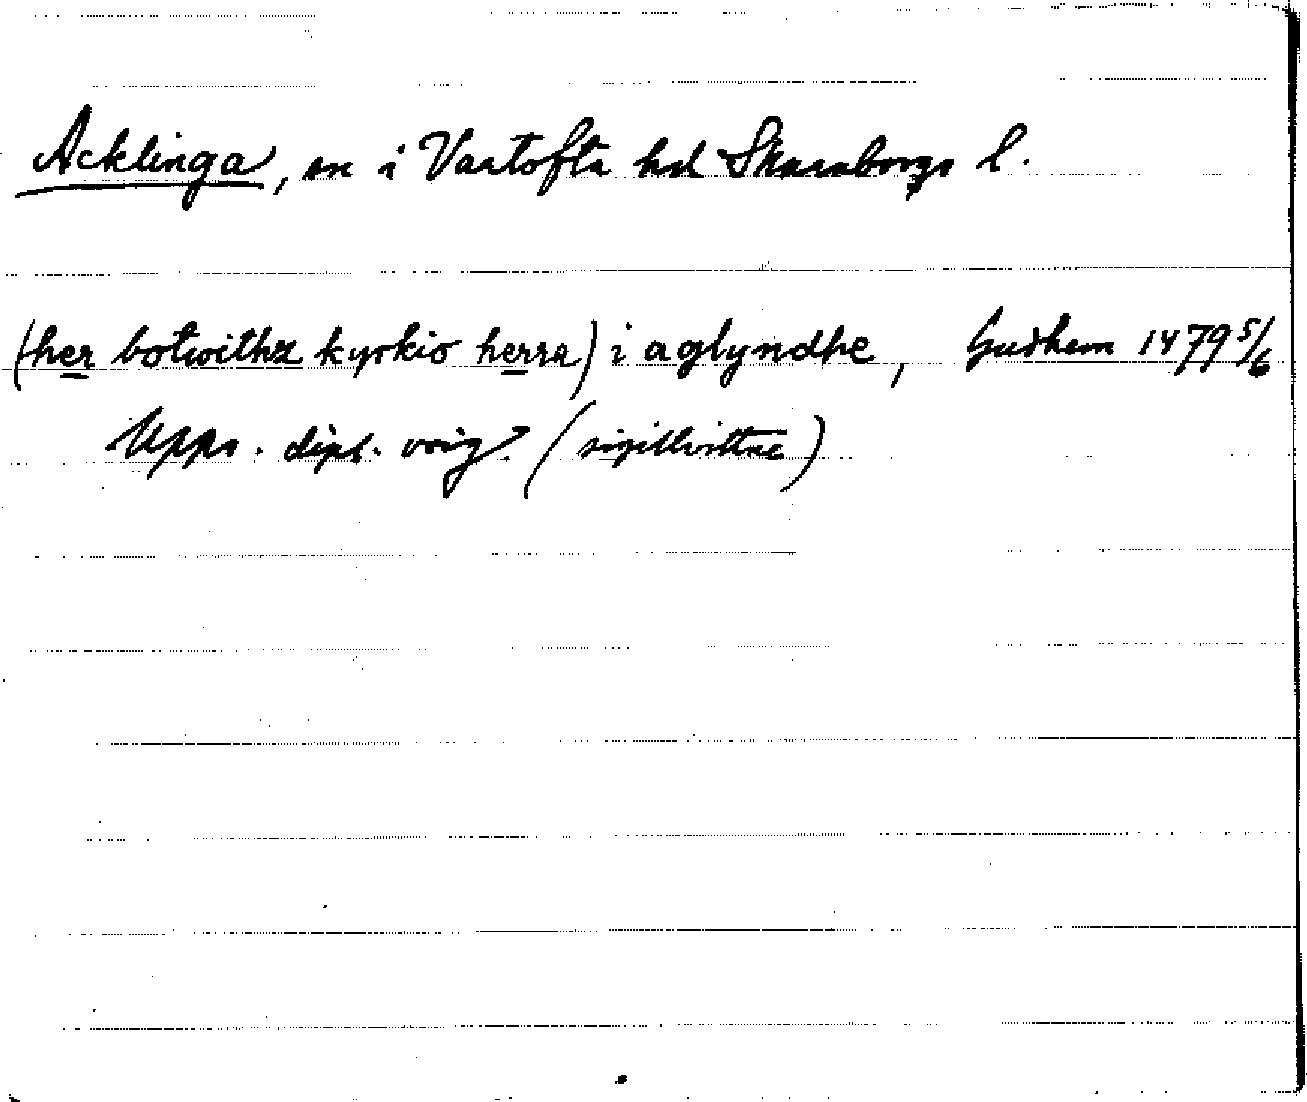 Acklinga, sn i Vartofta hd Skaraborgs l.
(her botwithz kyrkio herra) i aglyndhe, Gudhem 1479 5/6
Upps. dipl. orig. (sigillvittne)